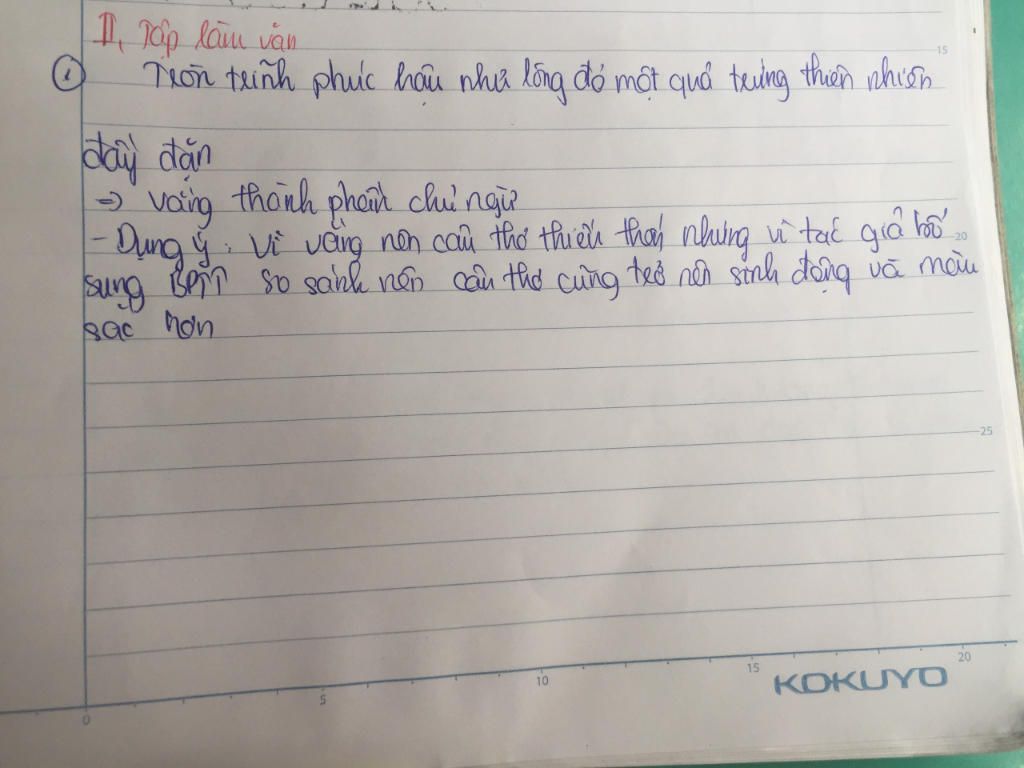 II, Tập làm văn
① Tròn trĩnh phúc hậu như lòng đỏ một quả trứng thiên nhiên
đầy đặn
=> vắng thành phần chủ ngữ
- Dụng ý: Vì vắng nên câu thơ thiếu nhưng vì tác giả bổ
sung BPTT so sánh nên câu thơ cũng trở nên sinh động và màu
sắc hơn
15
20
25
0
5
10
15
20
KOKUYO